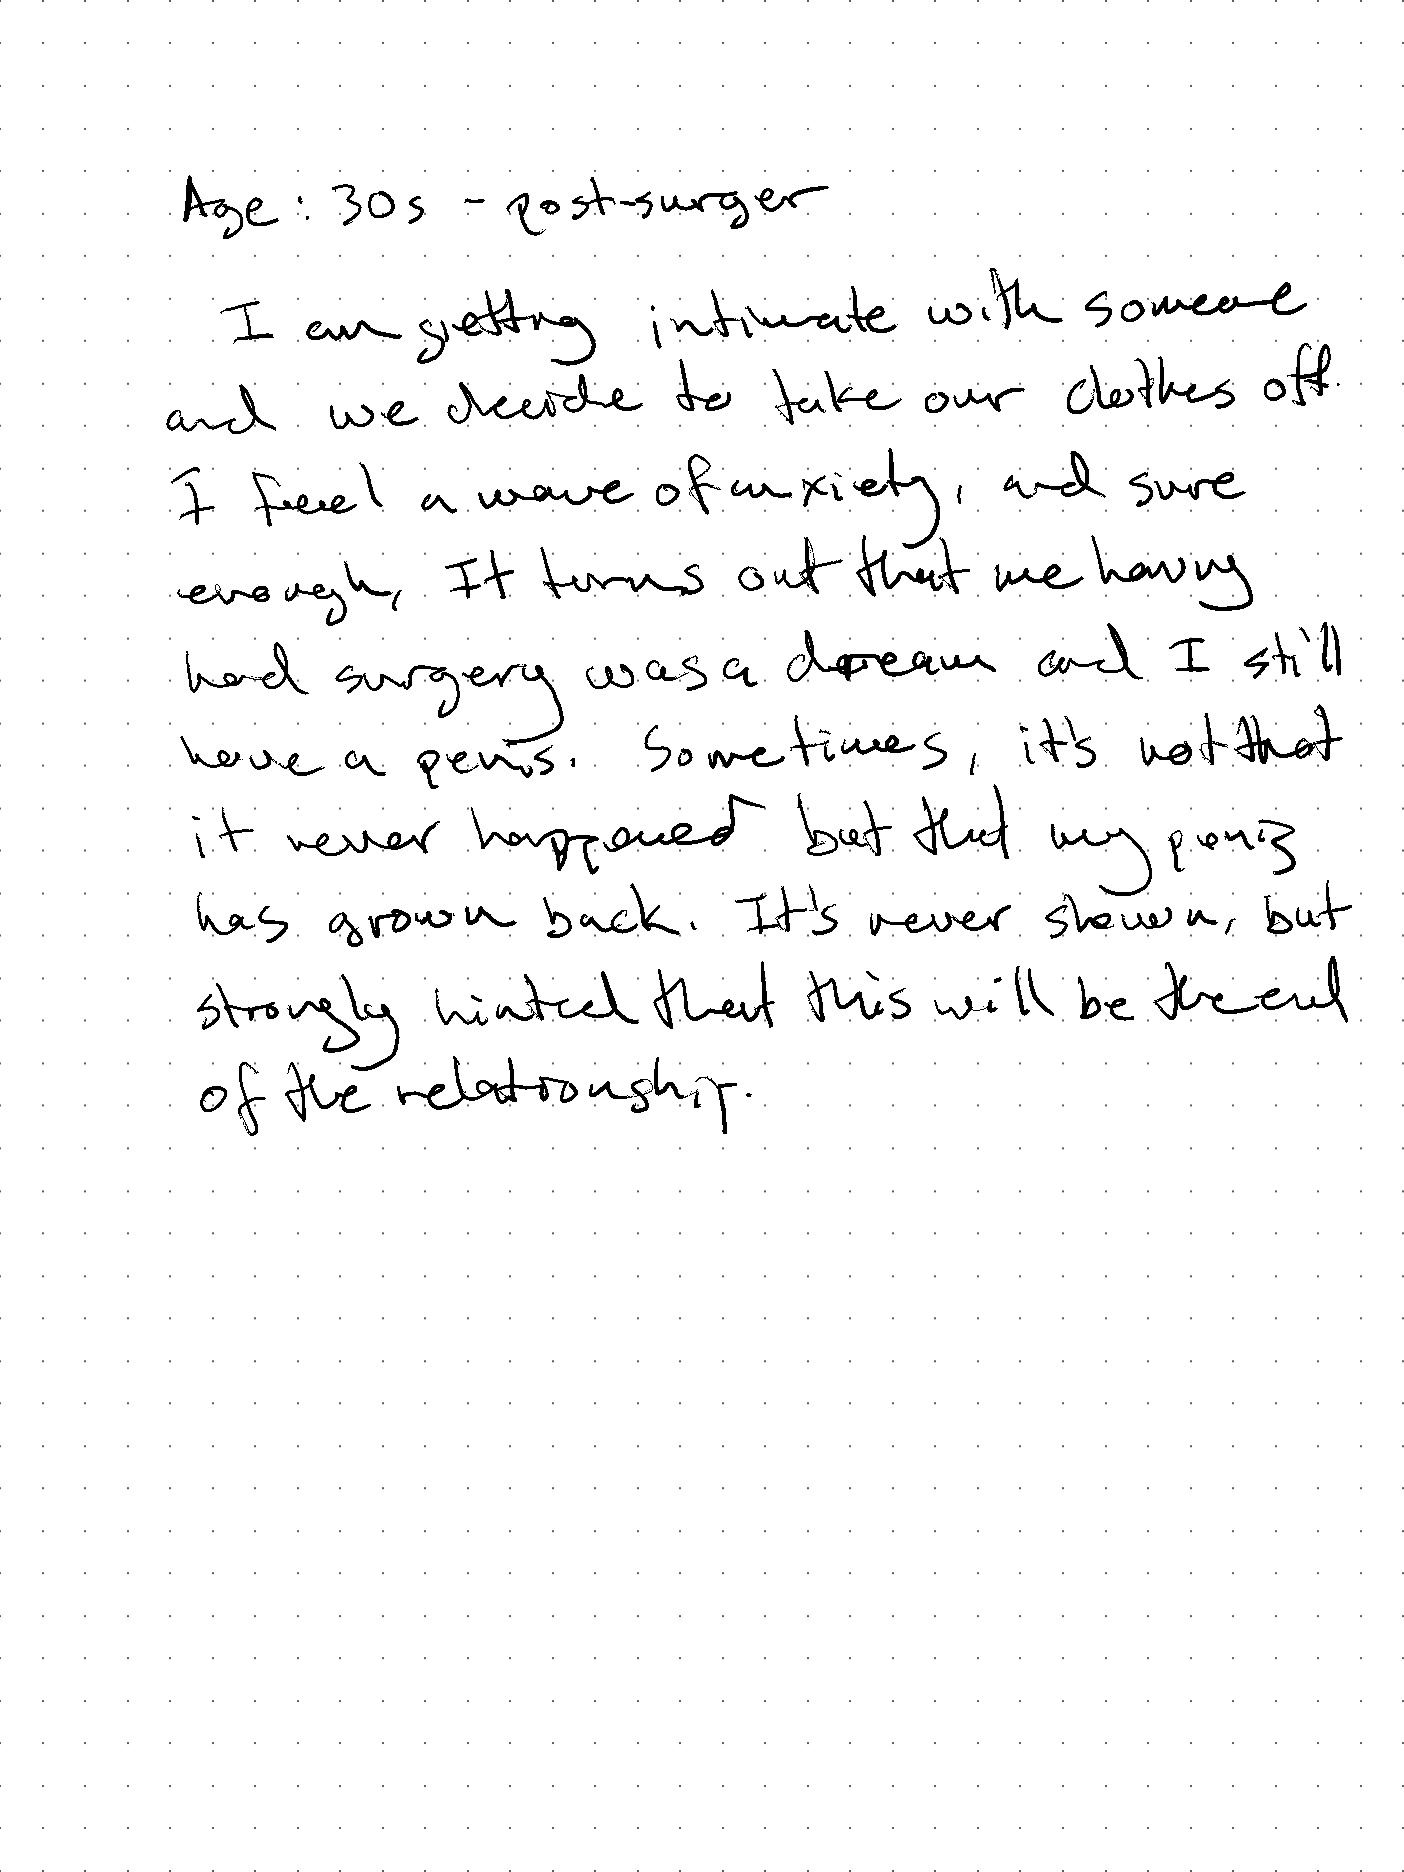 Age: 30s - post-surger
I am getting intimate with someone
and we decide to take our clothes off.
I feel a wave of anxiety, and sure
enough, It turns out that me having
had surgery was a dream and I still
have a penis. Sometimes, it's not that
it never happened but that my penis
has grown back. It's never shown, but
strongly hinted that this will be the end
of the relationship.